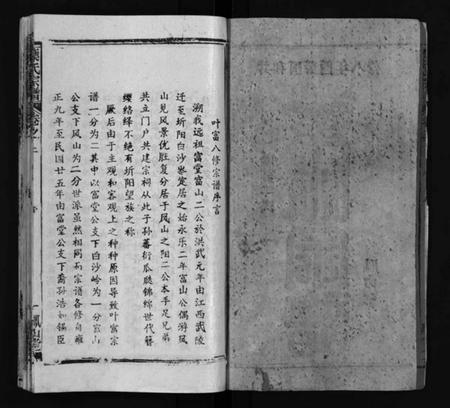 叶富八修宗谱序言
溯我远祖富堂富山二公於洪武元年由江西武陵
迁至圻阳白沙岺定居之始永乐二年富山公偶游凤
山见风景优胜复分居于凤山之阳二公本手足兄弟
共立门户共建宗祠从此子孙蕃衍瓜瓞锦绵世代簪
缨络绎不绝有圻阳望族之称
厥后由于主观和客观上之种种原因导致叶富宗
谱一分为二其中以富堂公支下白沙岭为一分富山
公支下凤山为二分世派虽然相同而宗谱各修自雍
正九年至民国廿五年由富堂公支下裔孙浩如锡臣